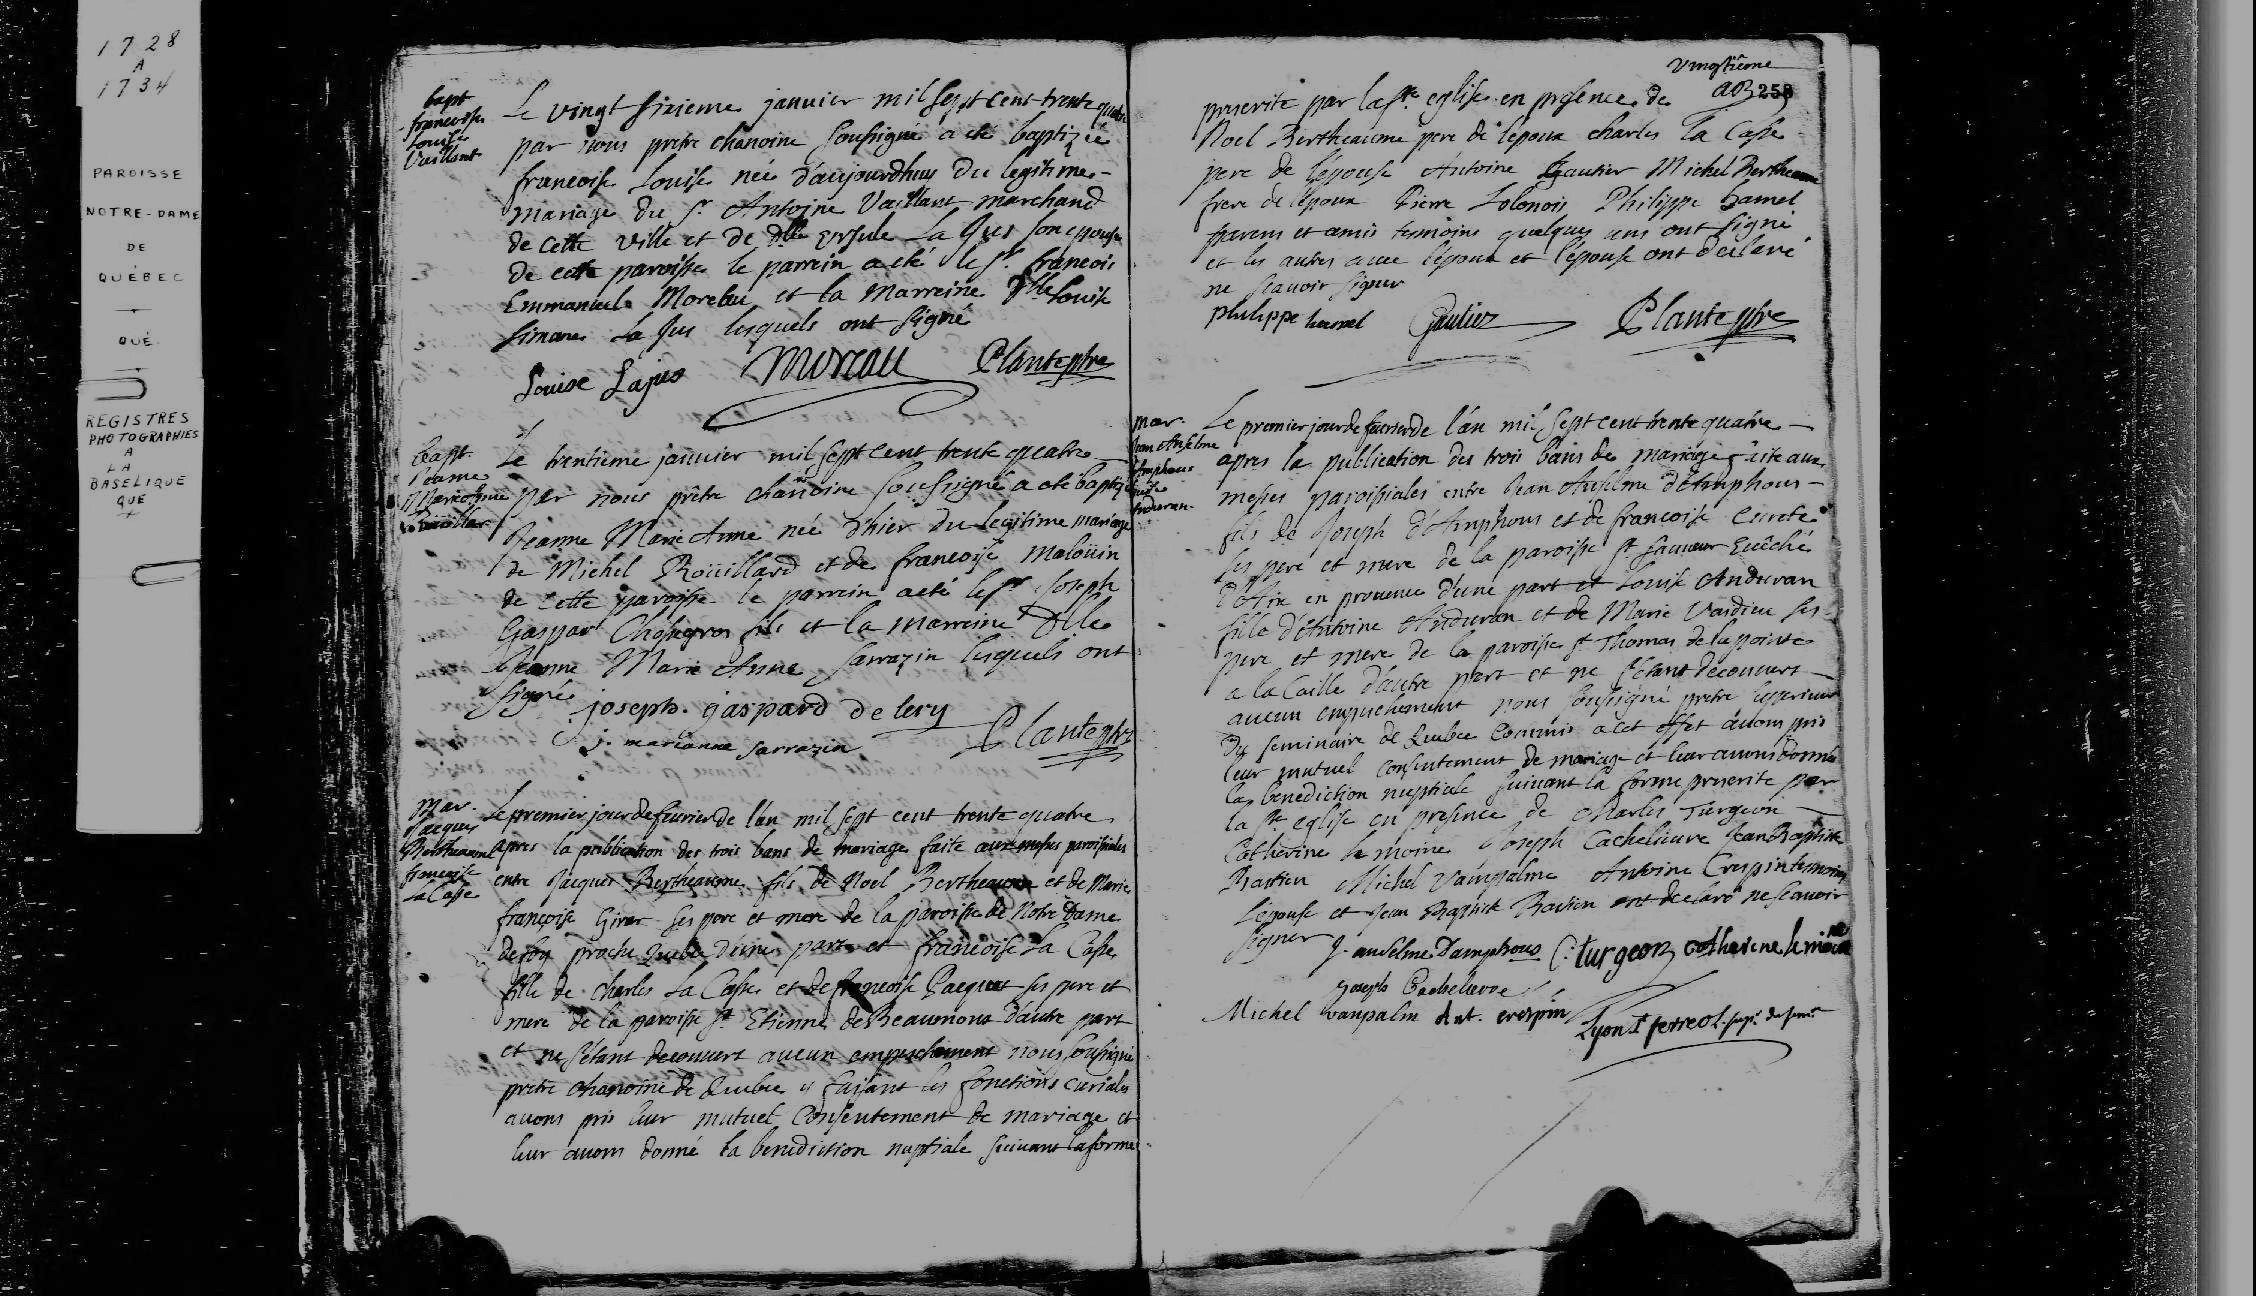 1728
A
1734
PAROISSE
NOTRE-DAME
DE
QUÉBEC
QUÉ.
REGISTRES
PHOTOGRAPHIES
A
LA
BASELIQUE
QUE
bapt
francoise
Louise
Vaillant
Le vingt sixieme janvier mil sept cent trente quatre
par nous pretre chanoine soussigné a eté baptizée
francoise Louise née d'aujourdhuy du legitime
mariage du Sr Antoine Vaillant marchand
de cette ville et de Dlle Ursule La Jus son epouse
de cette paroisse le parrein a eté le Sr francois
Emmanuel Moreau et la Marreine Dlle Louise
Simone La Jus lesquels ont signé
Louise Lajus Moreau Plante ptre
bapt
Jeanne
Marie Anne
Roüillar
Le trentieme janvier mil sept cent trente quatre
par nous prêtre chanoine soussigné a eté baptizé
Jeanne Marie Anne née d'hier du legitime mariage
de Michel Roüillard et de francoise Maloüin
de cette paroisse le parrein a eté le Sr Joseph
Gaspar Chossegros fils et la marreine Dlle
Jeanne Marie Anne Sarrazin lesquels ont
signé
joseph. gaspard de lery
j. marianne sarrazin Plante ptre
Mar.
Jacques
Bertheaume
francoise
La Casse
Le premier jour de feurier de l'an mil sept cent trente quatre
apres la publication des trois bans de mariage faite aux messes paroissiales
entre Jacques Bertheaume fils de Noel Bertheaume et de Marie
françoise Girar ses pere et mere de la paroisse de Notre Dame
de foy proche Quebec d'une part et francoise La Casse
fille de charles La Casse et de françoise Pacquet ses pere et
mere de la paroisse St Etienne de Beaumont d'autre part
et ne s'etant decouvert aucun empeschement nous soussigné
pretre chanoine de Quebec et faisant les fonctions curiales
avons pris leur mutuel consentement de mariage et
leur avons donné la benediction nuptiale suivant la forme
vingtième
253
prescrite par la ste eglise en presence de
Noel Bertheaume pere de l'epoux charles La Casse
pere de l'épouse Antoine Gautier Michel Bertheaume
frere de l'époux Pierre Solonois Philippe hamel
parens et amis temoins quelques uns ont signé
et les autres avec l'époux et l'épouse ont declaré
ne scavoir signer
philippe hamel Gautier Plante ptre
Mar.
Jean Anselme
Amphous
Louise
Anduran
Le premier jour de feurier de l'an mil sept cent trente quatre
apres la publication des trois bans de mariage faite aux
messes paroissiales entre Jean Anselme d'Amphous
fils de Joseph d'Amphous et de francoise
ses pere et mere de la paroisse St Sauveur Evêché
d'Aix en provence d'une part et Louise Anduran
fille d'Antoine Anduran et de Marie Vandieu ses
pere et mere de la paroisse St Thomas de la pointe
a la Caille d'autre part et ne s'etant decouvert
aucun empeschement nous soussigné pretre superieur
du seminaire de Quebec commis a cet effet avons pris
leur mutuel consentement de mariage et leur avons donné
la benediction nuptiale suivant la forme prescrite par
la ste eglise en presence de Charles Turgeon
Catherine le moine Joseph Cachelievre Jean Baptiste
Bastien Michel Vanpalme Antoine Crespin temoins
L'epouse et Jean Baptiste Bastien ont declaré ne scavoir
signer
J. anselme Damphous C: turgeon catherine le moine
joseph Cachelievre
Michel vanpalin Ant. crespin Lyon St ferreol. sup. du sem.